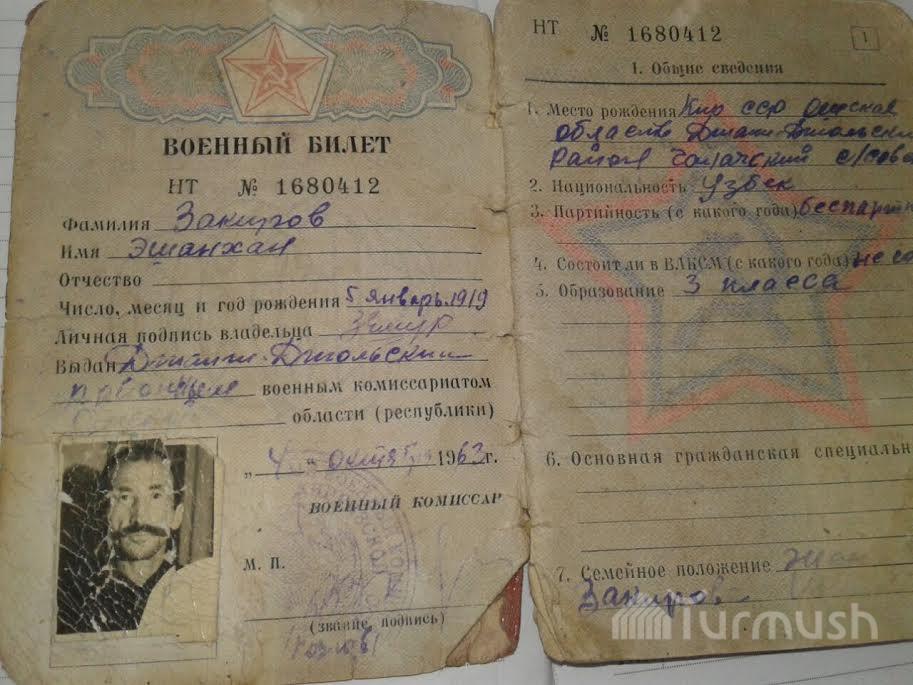 ВОЕННЫЙ БИЛЕТ
НТ № 1680412
Фамилия Закиров
Имя Эшанхан
Отчество
Число, месяц и год рождения 5 январь 1919
Личная подпись владельца
Выдан Джанги-Джольский
военным комиссариатом
области (республики)
„4“ октября 1963г.
ВОЕННЫЙ КОМИССАР
М. П.
(звание, подпись)
НТ № 1680412
1
1. Общие сведения
1. Место рождения Кир ССР Ошская
область Джанги-Джольский
район с/сове
2. Национальность Узбек
3. Партийность (с какого года) беспартий
4. Состоит ли в ВЛКСМ (с какого года) не со
5. Образование 3 класса
6. Основная гражданская специальн
7. Семейное положение
Закиров
Turmush